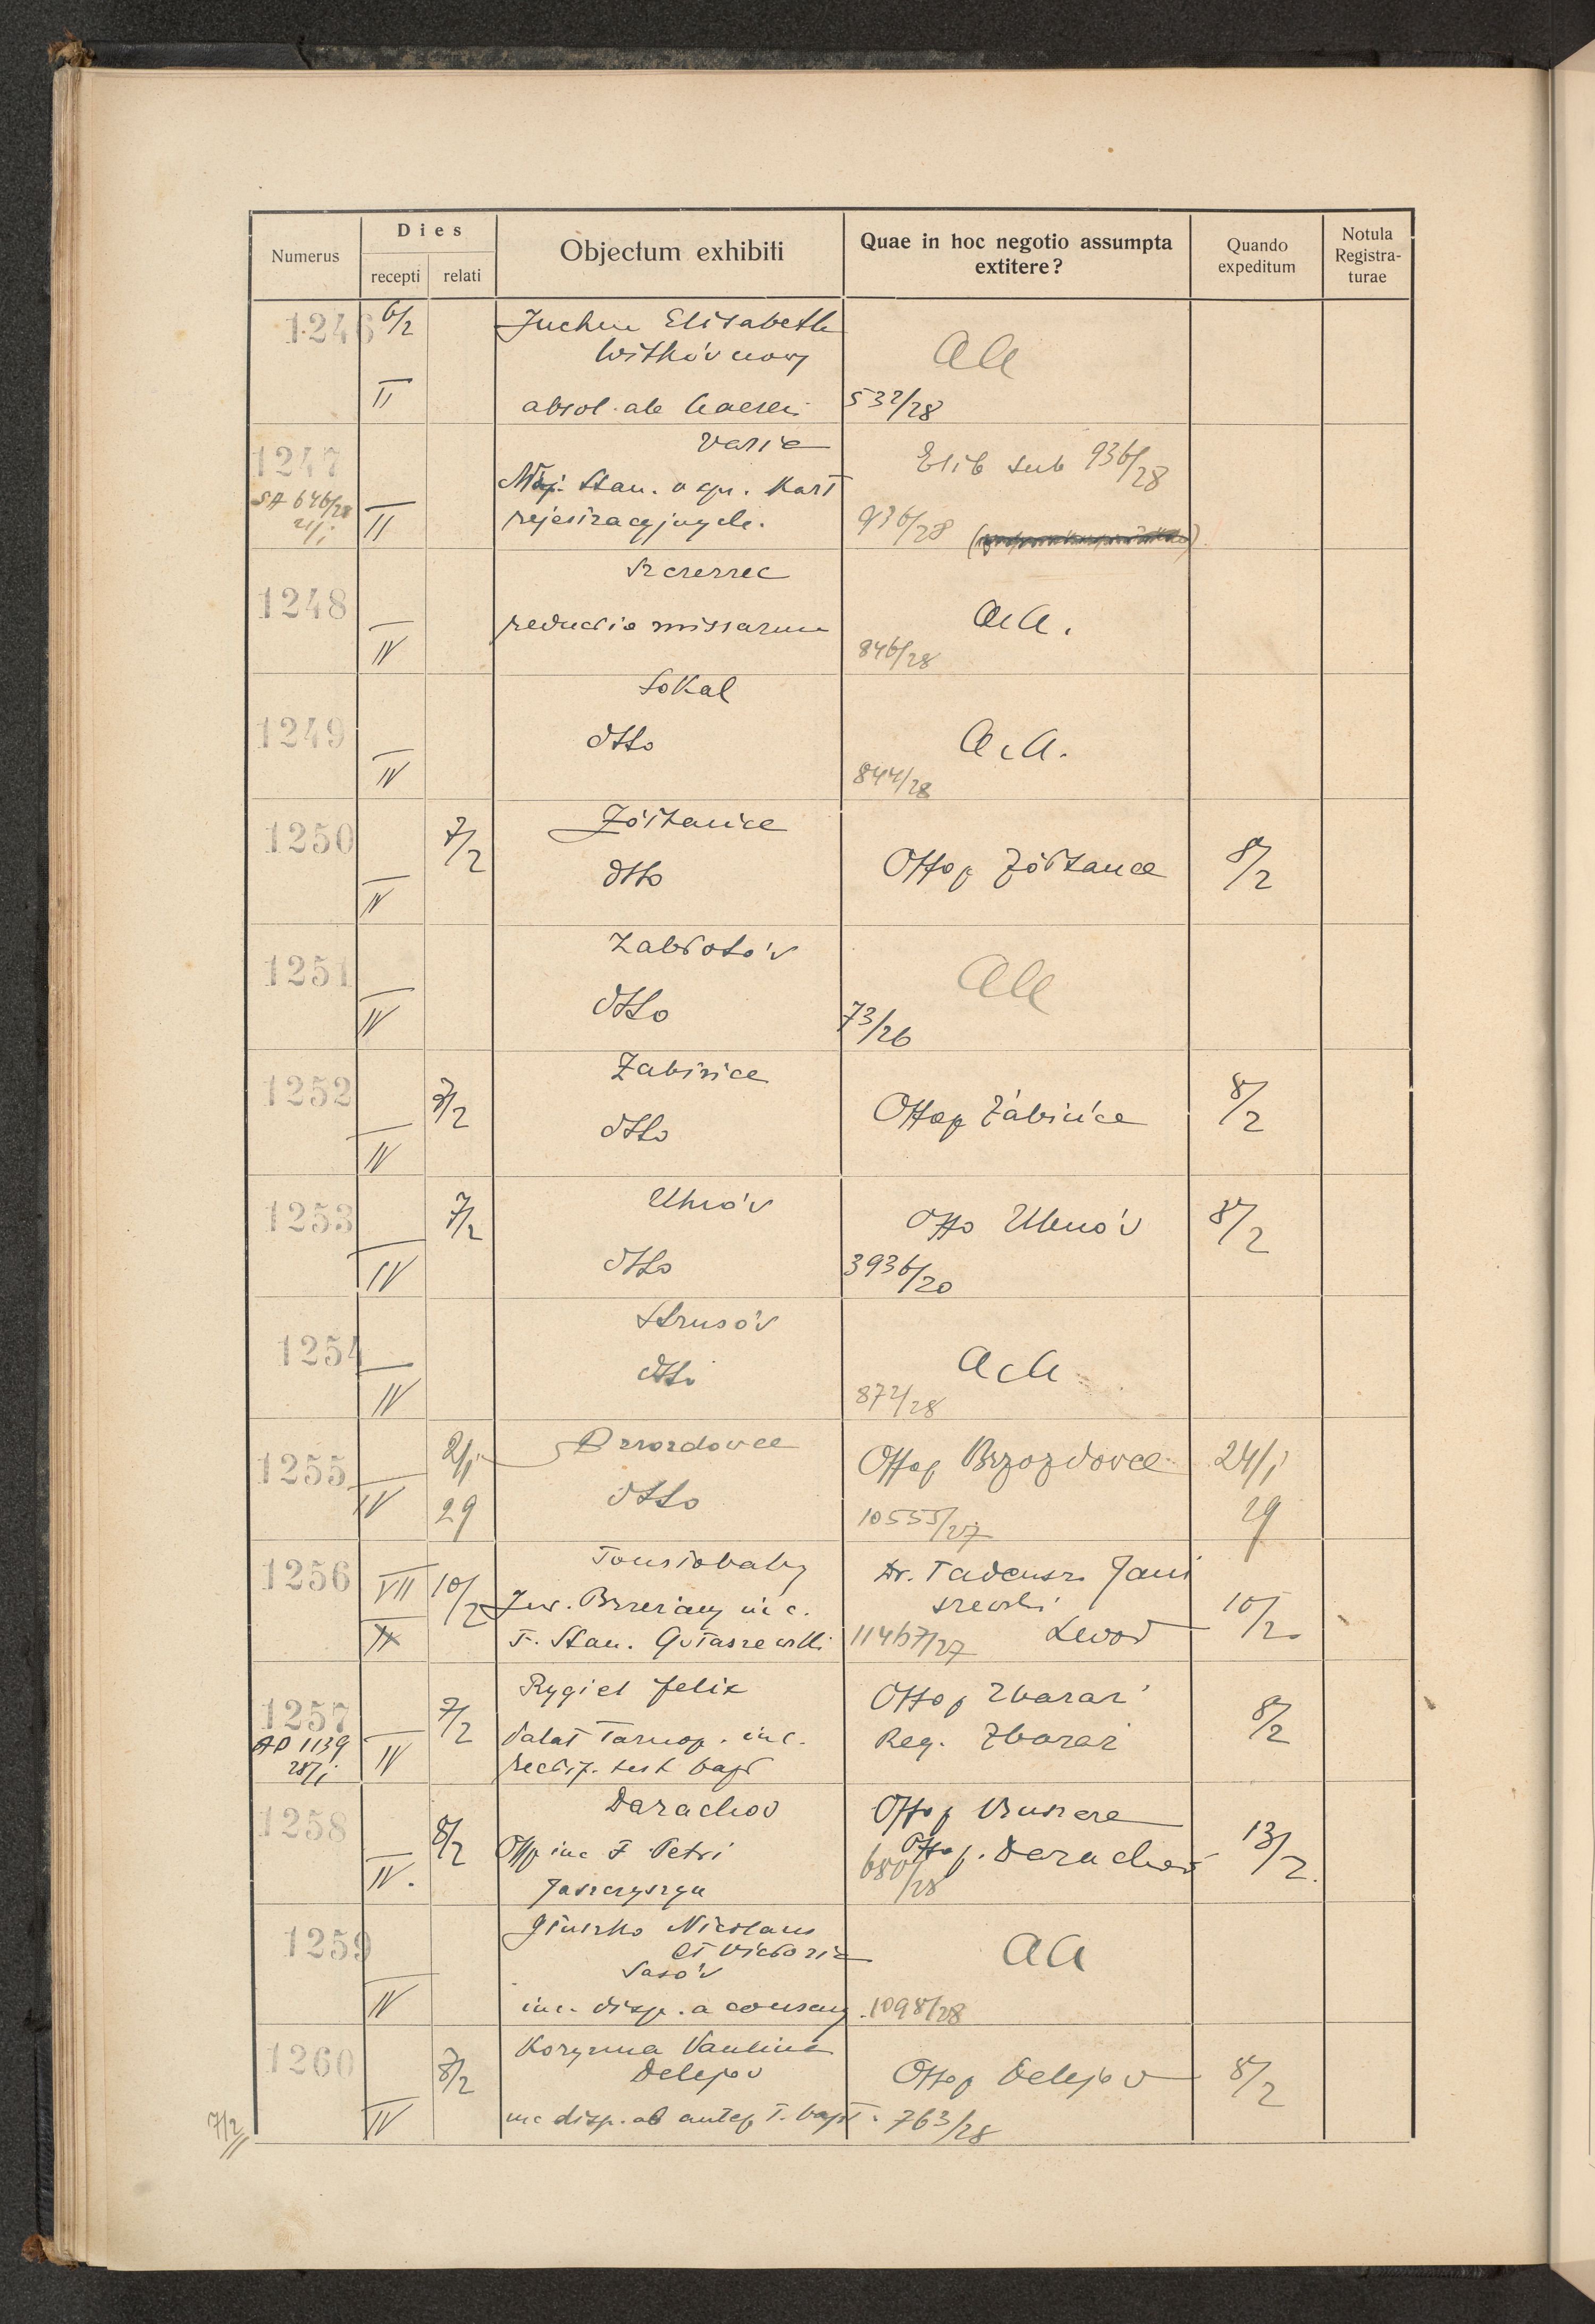 Numerus
Dies
recepti
relati
Objectum exhibiti
Quae in hoc negotio assumpta
extitere?
Quando
expeditum
Notula
Registra-
turae
1246 6/2
Elisabeth
II
absol. ab
532/28
1247
SA 646/28
21/I
II
Varia
Stan. o spr. Kart
rejestracyjnych.
Elib sub 936/28
936/28
1248
IV
Szczerzec
reductio missarum
aA.
846/28
1249
IV
Sokal
dtto
aA.
844/28
1250
7/2
IV
Żółtańce
dtto
Offop Żółtance
8/2
1251
IV
Zabłotów
dtto
73/26
1252
7/2
IV
Żabińce
dtto
Offop Żabińce
8/2
1253
7/2
IV
Uhnów
dtto
Offo Uhnów
3936/20
8/2
1254
IV
Strusów
dtto
872/28
1255
2/I
29
IV
Brzozdovce
dtto
Offop Brzozdovce
10555/27
24/I
29
1256
VII
10/2
IV
Toustobaby
Brzeżany in c.
F. Stan. Gołaszewski
Dr. Tadeusz Jani
szewski
11467/27 Lwów
10/2
1257
AD 1139
28/I
7/2
IV
Rygiel Felix
Palat Tarnop. in c.
rectif. test bapt
Offop Zbaraż
Reg. Zbaraż
8/2
1258
8/2
IV.
Darachov
Offp in c F Petri
Jaszczyszyn
Offop
Offop. Darachov
680/28
13/2.
1259
IV
Nicolaus
et Victoria
Sasów
in c. disp. a consang.
aa
1098/28
1260
8/2
IV
Delejov
in c disp. ab antep T. bapt.
Offop Delejov
763/28
8/2
7/2